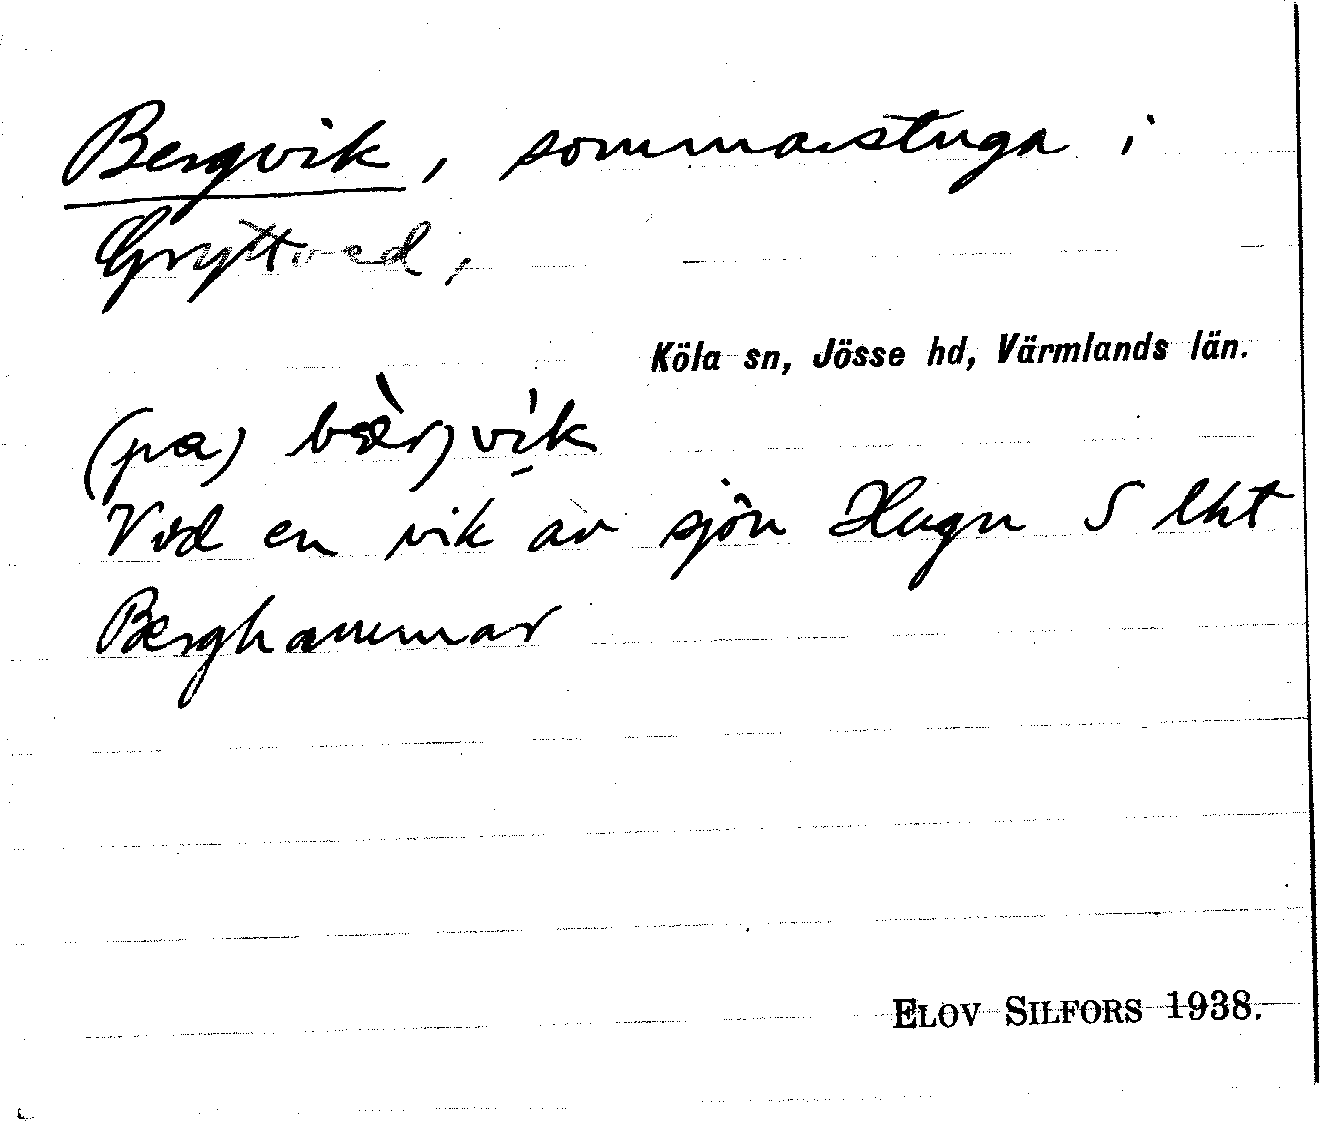 Bergvik, sommarstuga i
Gryttved,
Köla sn, Jösse hd, Värmlands län.
(pa) bæ̀rjvi̱k
Vid en vik av sjön Hugn S lht
Berghammar
ELOV SILFORS 1938.